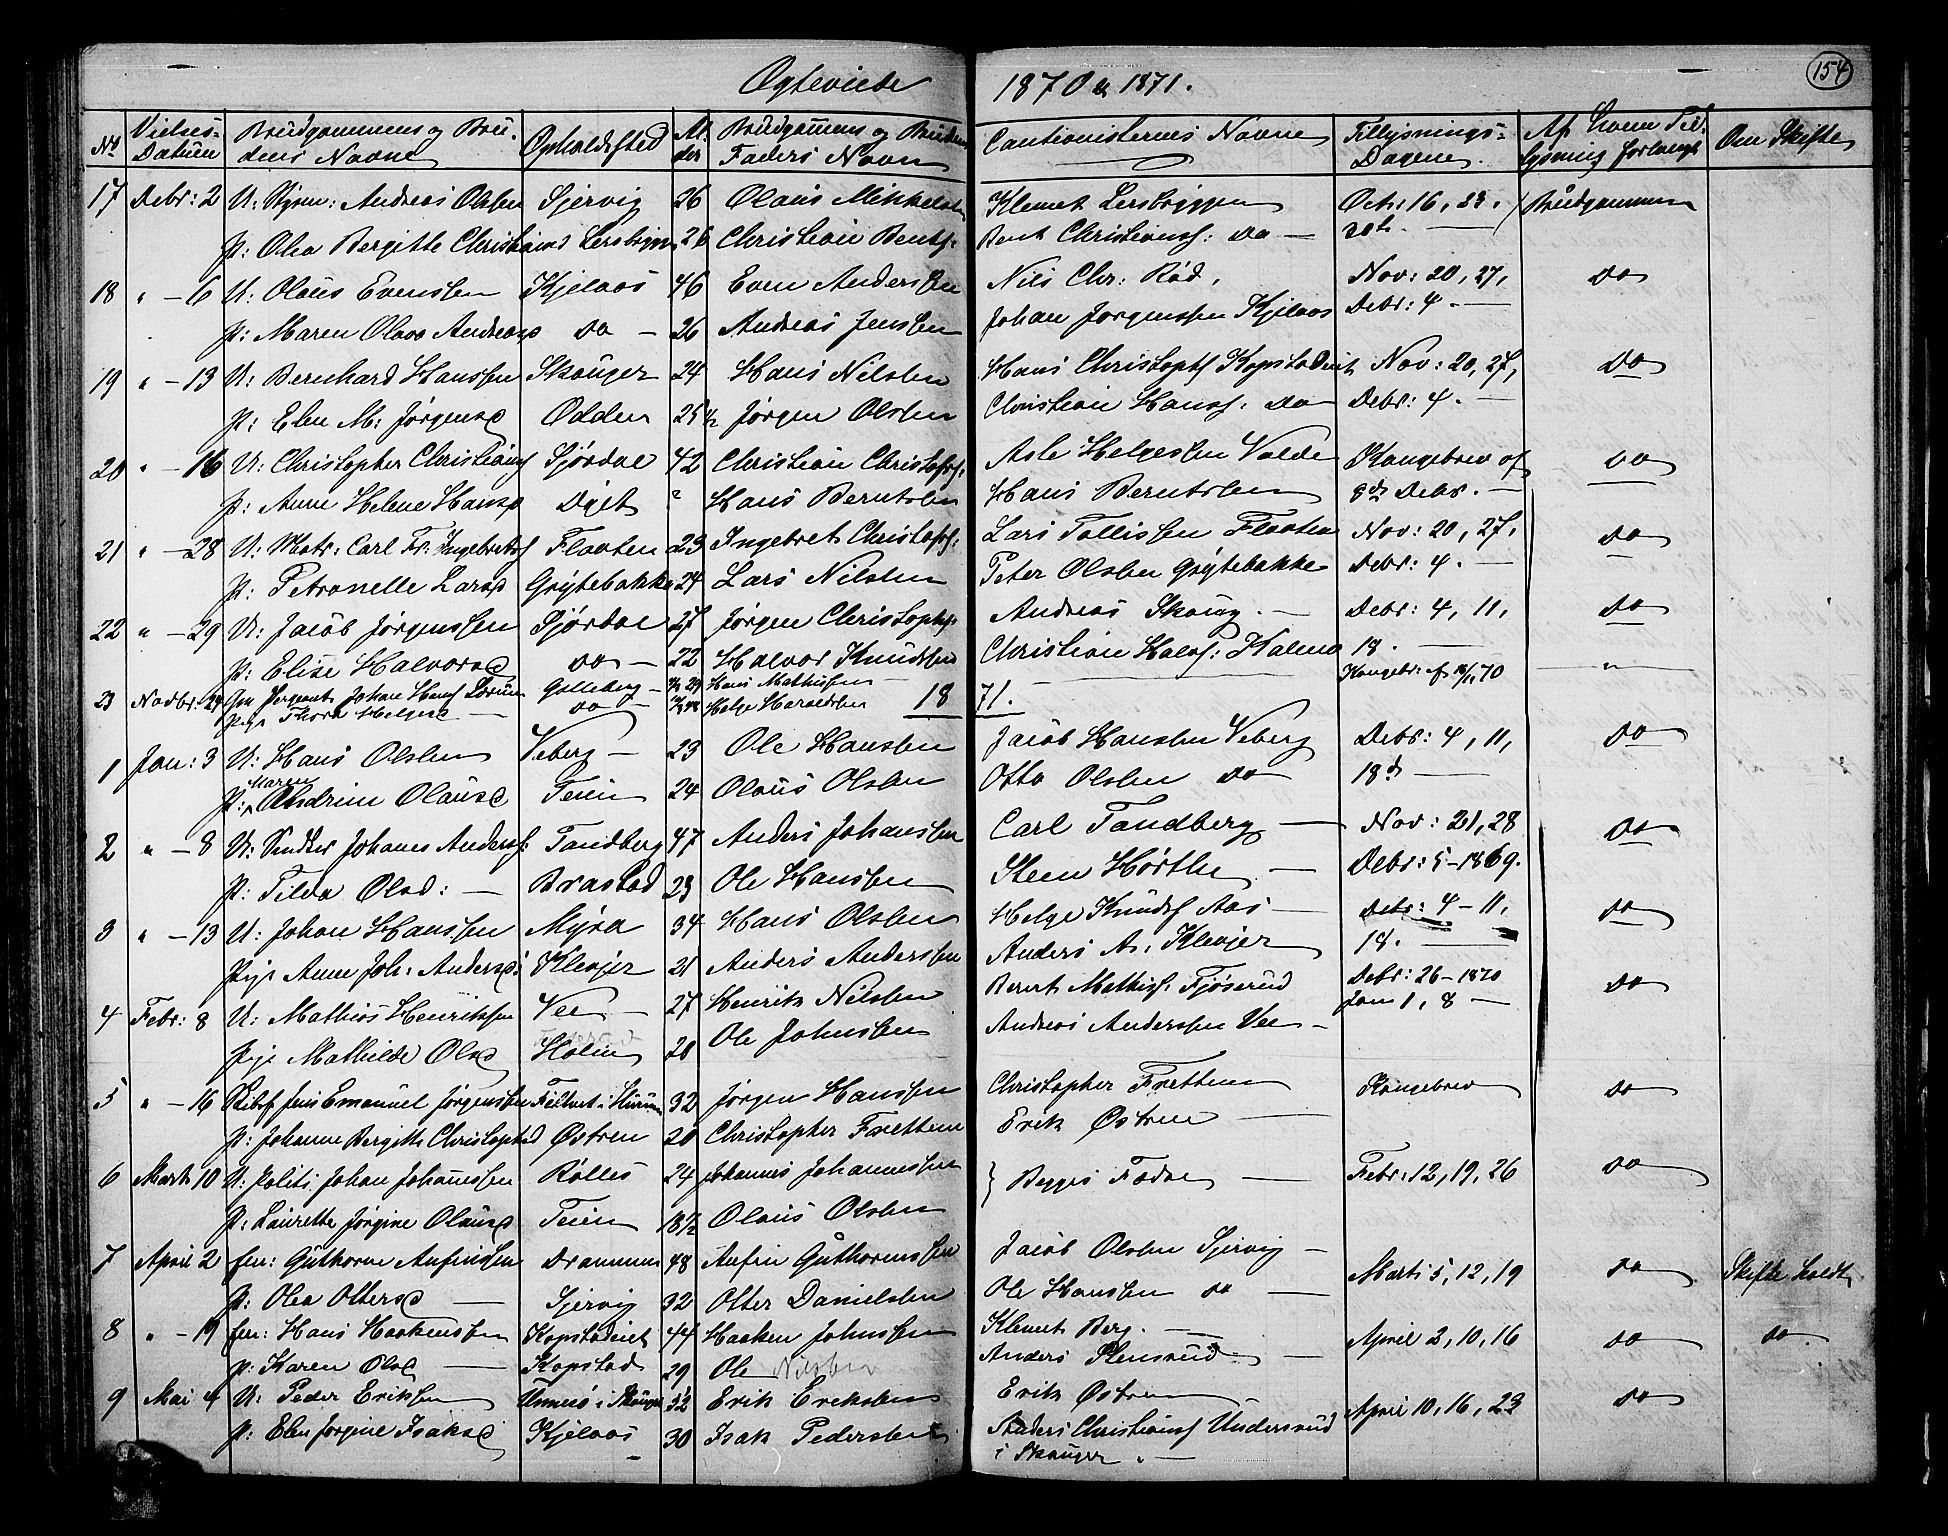 Ægteviede 1870 & 1871. 154
No Vielses- Datum Brudgommens og Brudens Navne Opholdsted Alder Brudgommens og Brudens Faders Navn Cautionisternes Navne Tillysnings- Dagene. Af hvem Tillysning forlangt Om Skifte
17 Debr: 2 U: Styrm: Andreas Olsen Sjervig 26 Olaus Mikkelsen Klemet Lersbryggen Octr: 16, 23. Brudgommen
p: Olea Bergitte Christians Lersbryg 26 Christian Bents: Bent Christians: do — 30te. —
18 " — 6 U: Olaus Evenssen Kjelaas 46 Even Anderssen Nils Chr: Röd. Nov: 20, 27, do
p: Maren Olava Andreasd do — 26 Andreas Jenssen Johan Jørgenssen Kjelaas Debr: 4. —
19 " — 13 U: Bernhard Hanssen Skouger 24 Hans Nilsen Hans Christophs Kopstadeiet Nov: 20, 27, do
p: Elen M: Jørgensd Odden 25 1/2 Jørgen Olsen Christian Hanss: do Debr: 4. —
20 " — 16 U: Christopher Christians Fjørdae 42 Christian Christophs: Asle Helgessen Valde Kongebrev af do
p: Anne Helene Hansd Döjet " Hans Berntsen Hans Berntsen 8de Debr. —
21 " — 28 U: Matr: Carl Fr: Ingebrets Flaaten 23 Ingebret Christophs: Lars Tollissen Flaaten Nov: 20, 27, do
p: Petronelle Larsd Grytebakke 24 Lars Nilsen Peter Olsen Grytebakke Debr: 4. —
22 " — 29 U: Jacob Jørgenssen Fjørdae 27 Jørgen Christophs: Andreas Skoug. — Debr: 4, 11, do
p: Elise Halvorsd do — 22 Halvor Knudssen Christian Halvs: Holm 18. —
23 Novbr: 24 Johan Hans Golleberg — 29 Hans Mathissen — Kongebr: af 70 "
Pige Thora Helgesd — do — Helge Haraldsen
1871.
1 Jan: 3 U: Hans Olsen Veberg — 23 Ole Hansen Jacob Hansen Veberg Debr: 4, 11, do
Maren
p: Andrine Olausd Teien 24 Olaus Olsen Otto Olsen do 18de —
2 " — 8 U: Snedker Johanes Anders: Tandberg 47 Anders Johanssen Carl Tandberg — Nov: 21, 28 do
p: Tilda Olsd: — Brastad 23 Ole Hanssen Steen Hörthe — Debr: 5 – 1869.
3 " — 13 U: Johan Hanssen Myra 34 Hans Olsen Helge Knuds Aas — Debr: 4 – 11, do
Pige Anne Joh: Andersd: Klevjer 21 Anders Anderssen Anders A: Klevjer 18. —
4 Febr: 8 U: Mathias Henriksen Vee — 27 Henrik Nilsen Bernt Mathis: Fjøserud Debr: 26 – 1870 do
Pige Mathilde Olsd Holm 20 Ole Johnssen Andreas Anderssen Vee — Jan 1, 8 —
5 " — 16 Skibsf Jens Emanuel Jørgenssen Filtvet i Hurum 32 Jørgen Hanssen Christopher Frettem Kongebrev do
p: Johanne Bergitte Christophd Østren 20 Christopher Frettem Erik Østren —
6 Marts 10 U: Politi. Johan Johanssen Rølles 24 Johannes Johannessen } Begges Fædre — Febr: 12, 19, 26 do
p: Laurette Jørgine Olausd Teien 18 1/2 Olaus Olsen
7 April 2 Em: Guthorm Anfinssen Drammen 48 Anfin Guthormssen Jacob Olsen Sjervig — Marts 5, 12, 19 do Skifte holdt
p: Olea Ottersd — Sjervig 32 Otter Danielsen Ole Hanssen do —
8 " — 19 Em: Hans Haakenssen Kopstadeiet 44 Haaken Johnssen Klemet Berg. — April 2, 10, 16 do do
p: Karen Olsd — Kopstad 29 Ole Nilsen Anders Stensrud. —
9 Mai 4 U: Peder Eriksen Unnesö i Skouger 32 Erik Ereksen Erik Østren — April 10, 16, 23 do
p: Elen Jørgine Isaksd Kjelaas 30 Isak Pedersen Anders Christians Undersrud
i Skouger. —